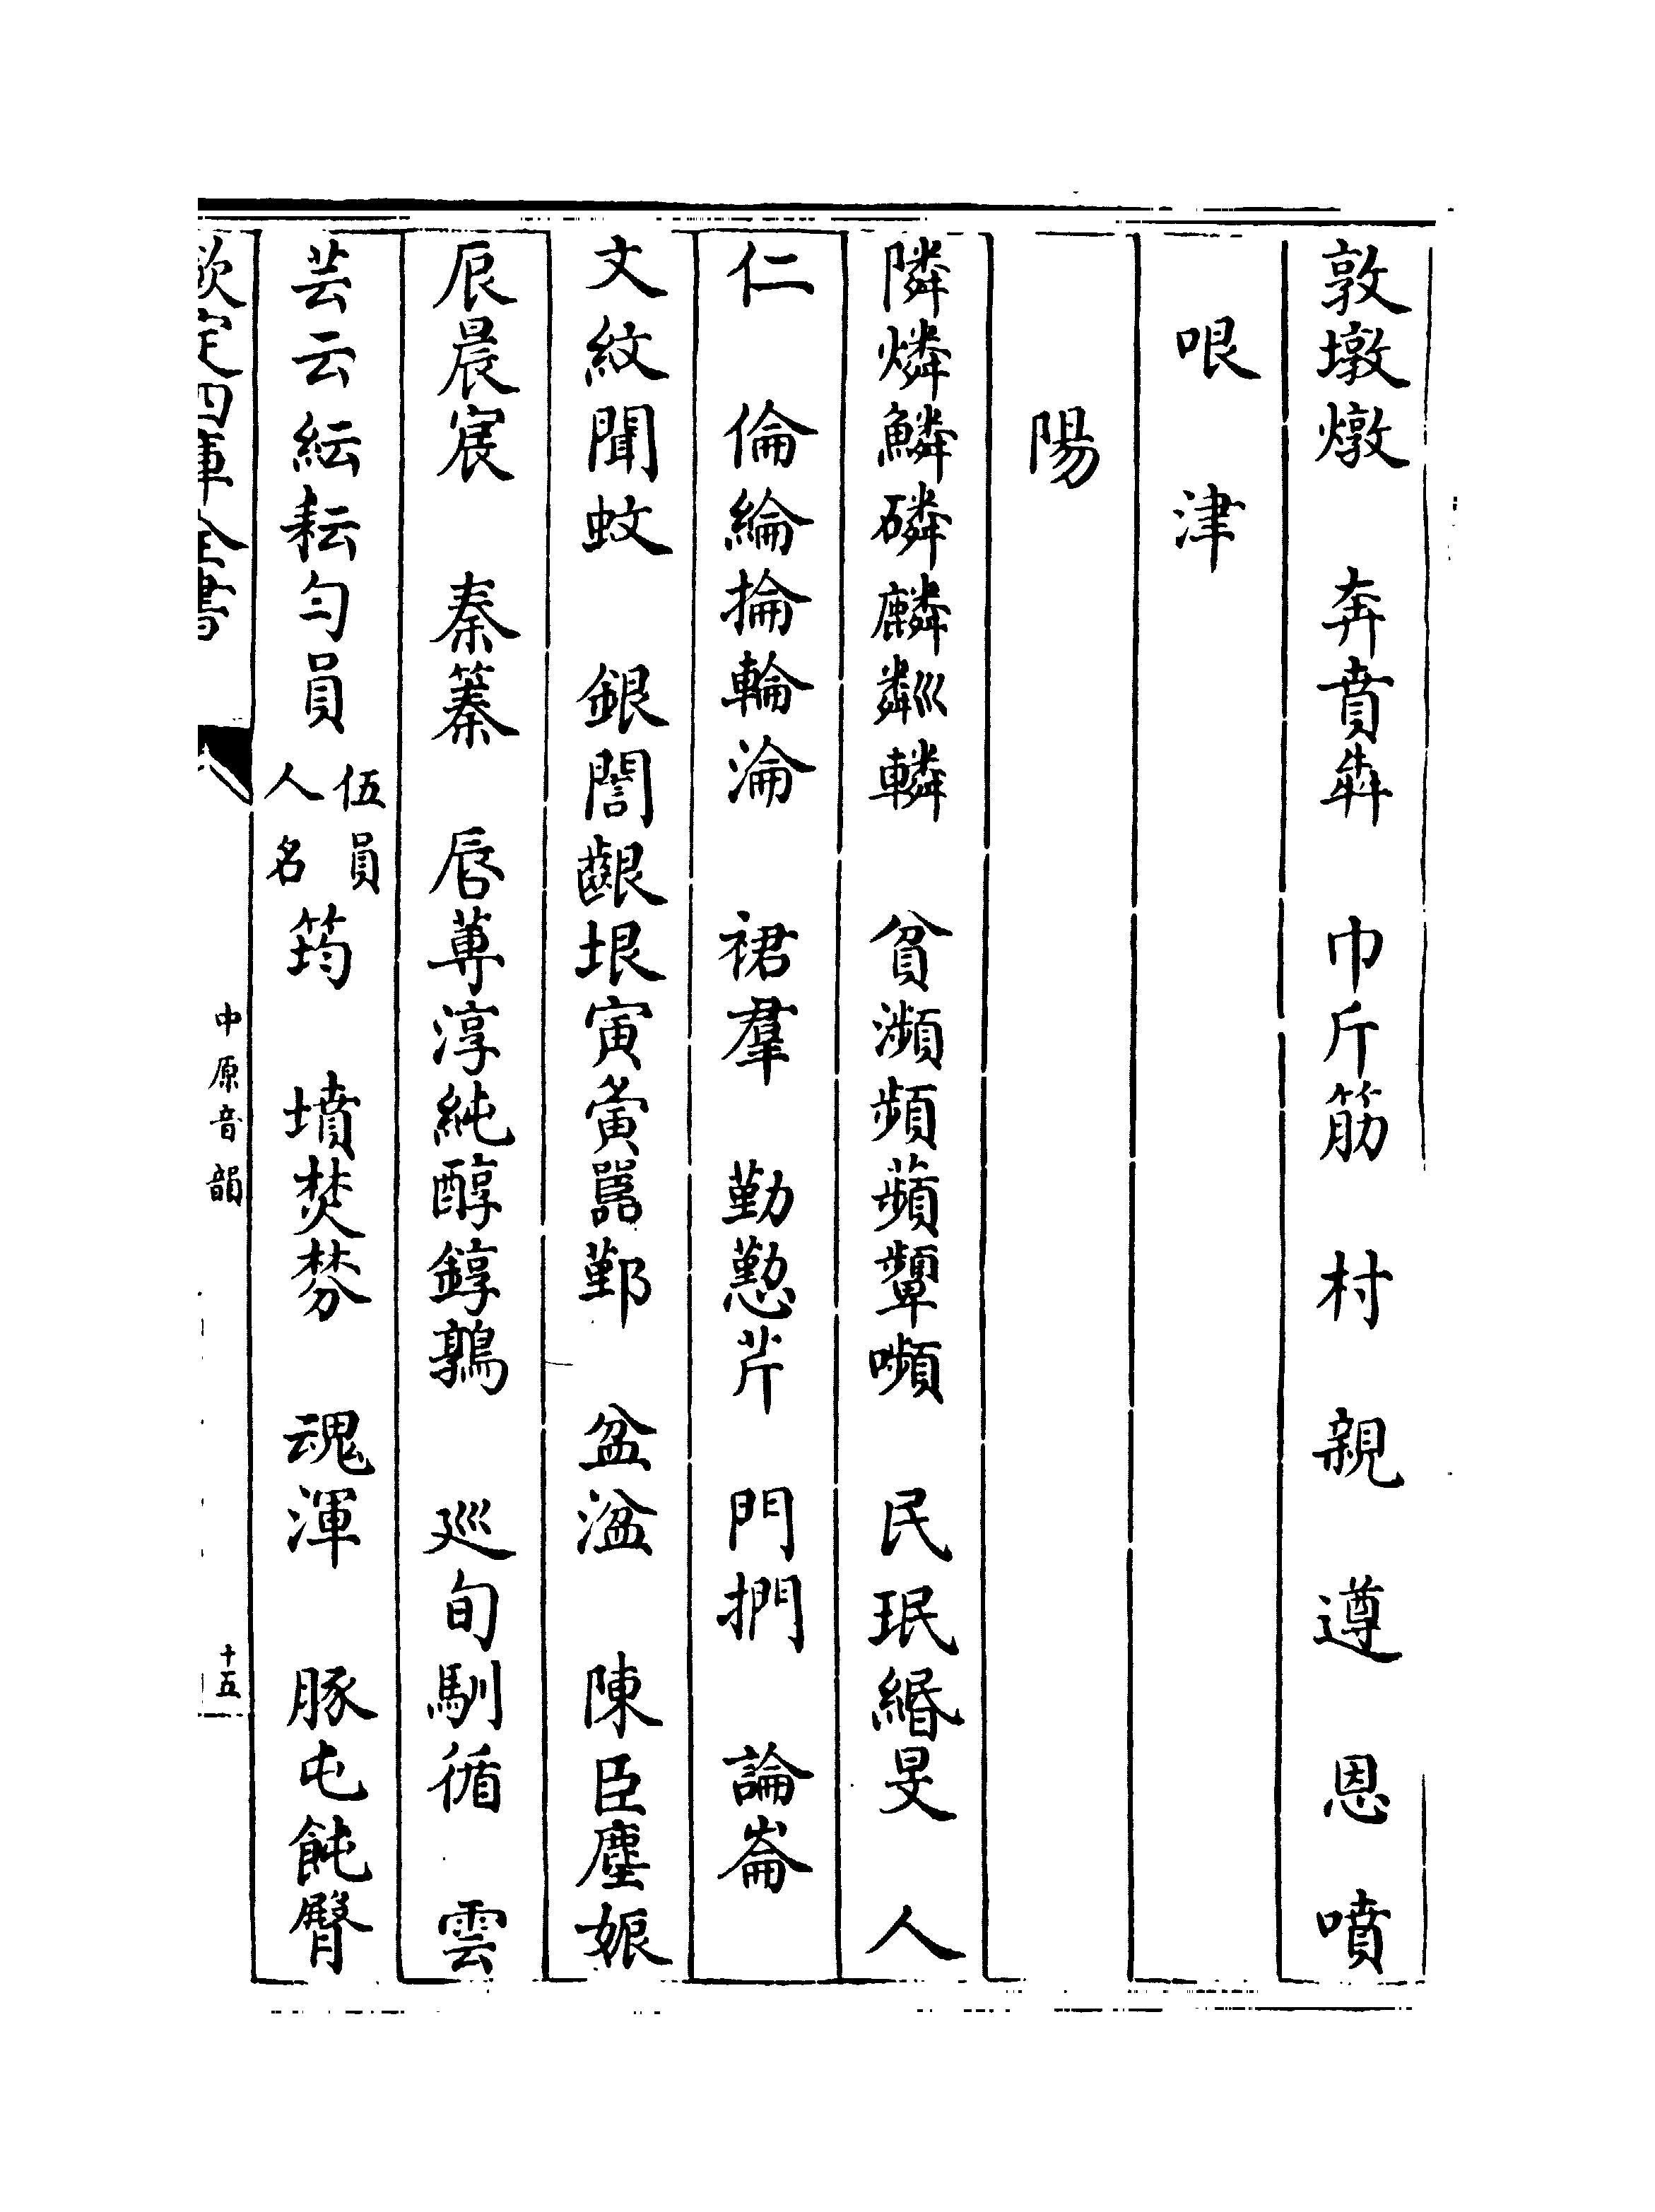 敦墩燉　奔賁犇　巾斤筋　村　親　遵　恩　噴
哏　津
陽
隣燐鱗磷麟粼轔　貧瀕頻蘋顰嚬　民珉緡旻　人
仁　倫綸掄輪淪　裙羣　勤懃芹　門捫　論崙
文紋聞蚊　銀誾齦垠寅夤嚚鄞　盆湓　陳臣塵娠
辰晨宸　秦蓁　唇蓴淳純醇錞鶉　巡旬馴循　雲
芸云紜耘勻員伍員人名筠　墳焚棼　魂渾　豚屯飩臀
欽定四庫全書　中原音韻　十五